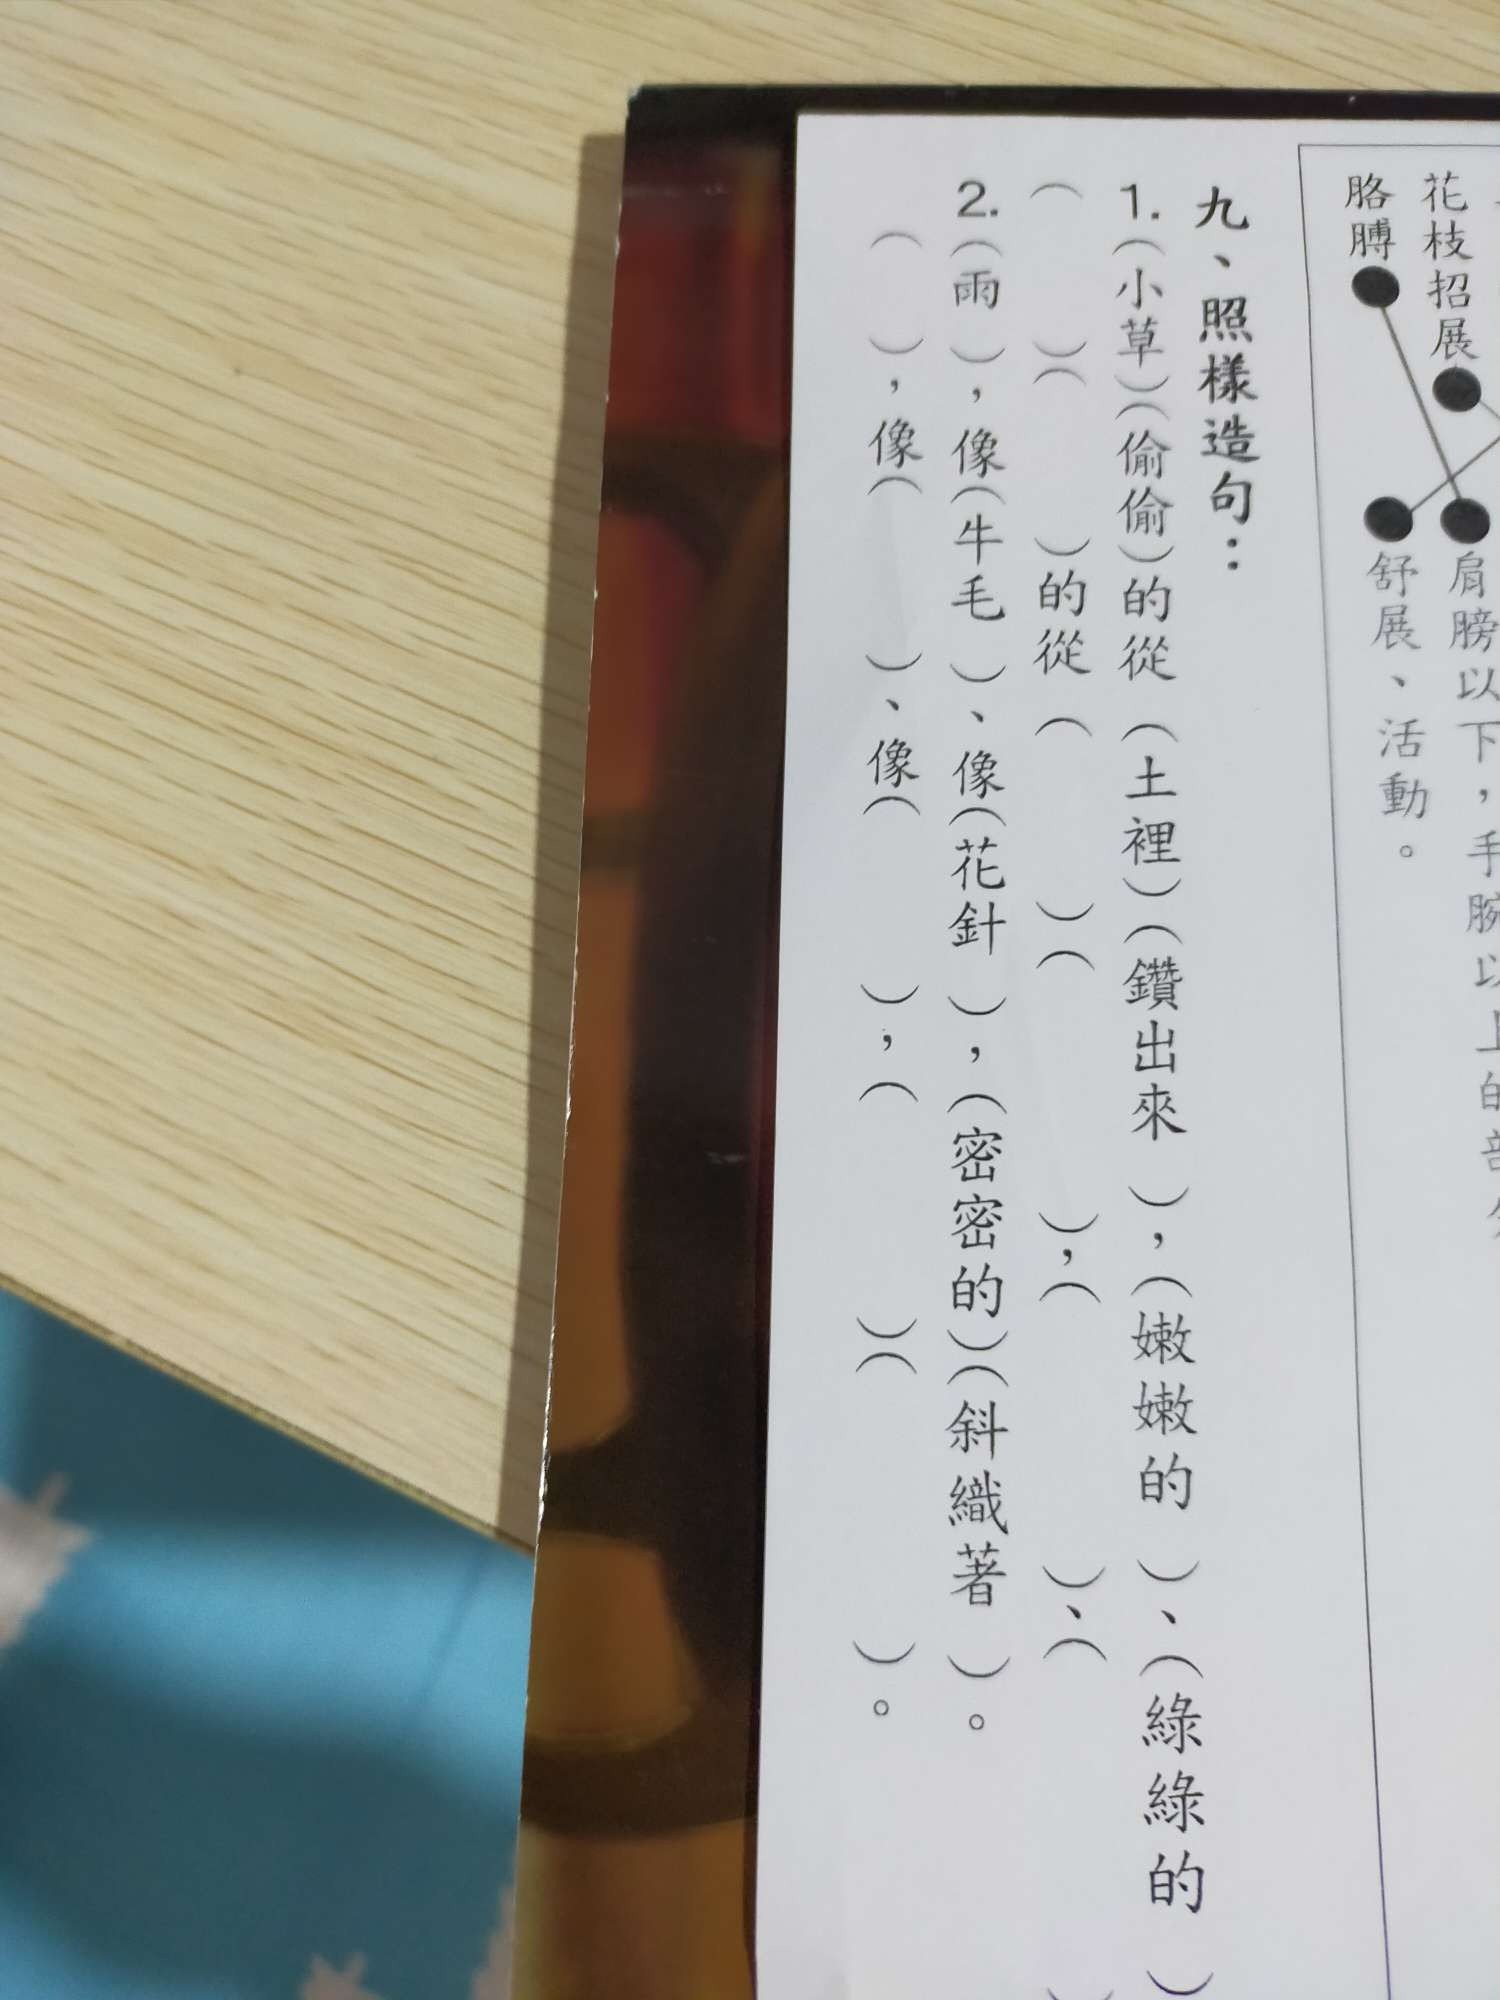 胳膊
花枝招展
肩膀以下，手腕以上的部
舒展、活動。
九、照樣造句：
1.（小草）（偷偷）的從（土裡）（鑽出來），（嫩嫩的）、（綠綠的）
（ ）（ ）的從（ ）（ ），（ ）、（ ）
2.（雨），像（牛毛）、像（花針），（密密的）（斜織著）。
（ ），像（ ）、像（ ），（ ）（ ）。